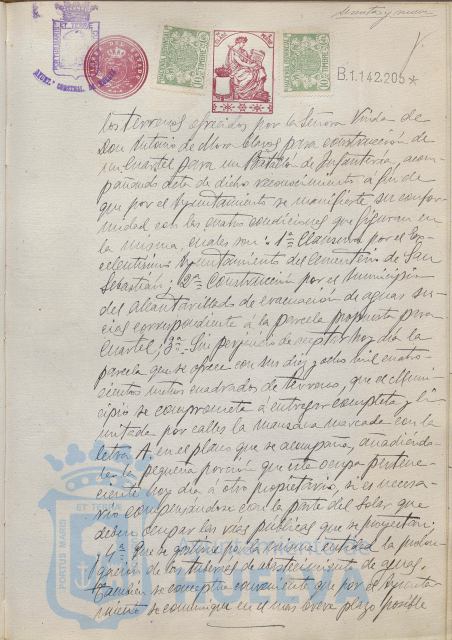 sesenta y nueve
B.1.142.205*
los terrenos ofrecidos por la Señora Viuda de
Don Antonio de Mora Claros para construcción de
un Cuartel para un Batallón de Infantería, acom-
pañando acta de dicho reconocimiento á fin de
que por el Ayuntamiento se manifieste su confor-
midad con las cuatro condiciones que figuran en
la misma, cuales son: 1ª Clausura por el Ex-
celentísimo Ayuntamiento del Cementerio de San
Sebastián; 2ª Construcción por el Municipio
del Alcantarillado de evacuación de aguas su-
cias correspondiente á la parcela propuesta para
Cuartel; 3ª Sin perjuicio de aceptar hoy día la
parcela que se ofrece con sus diez y ocho mil cuatro-
cientos metros cuadrados de terreno, que el Muni-
cipio se comprometa á entregar completa y li-
mitada por calles la manzana marcada con la
letra A, en el plano que se acompaña, añadiendo-
le la pequeña porción que este ocupa pertene-
ciente hoy día á otro propietario, si es necesa-
rio compensándose con la parte del solar que
deben ocupar las vías públicas que se proyectan;
y 4ª que se gestione por la misma entidad la prolon-
gación de las tuberías de abastecimiento de aguas.
También se conceptúa conveniente que por el Ayunta-
miento se comunique en el mas breve plazo posible
PORTUS MARIS
ET TERRÆ
Ayuntamiento de
HUELVA